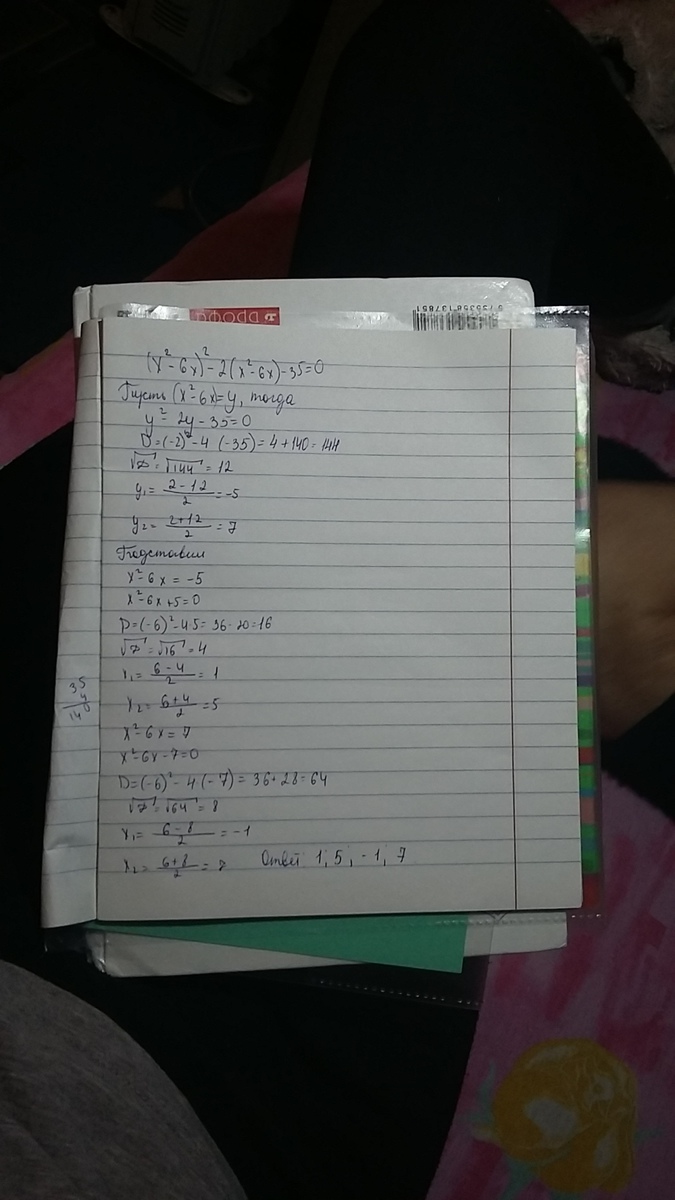 дрофа
9 785358 137851
(x²-6x)²-2(x²-6x)-35=0
Пусть (x²-6x)=y, тогда
y²-2y-35=0
D=(-2)²-4 (-35)=4+140=144
√D=√144=12
y₁= 2-12/2 =-5
y₂= 2+12/2 =7
Подставим
x²-6x=-5
x²-6x+5=0
D=(-6)²-4·5=36-20=16
√D=√16=4
x₁= 6-4/2 =1
x₂= 6+4/2 =5
x²-6x=7
x²-6x-7=0
D=(-6)²-4(-7)=36+28=64
√D=√64=8
x₁= 6-8/2 =-1
x₂= 6+8/2 =7 Ответ 1; 5; -1; 7
35
4
140